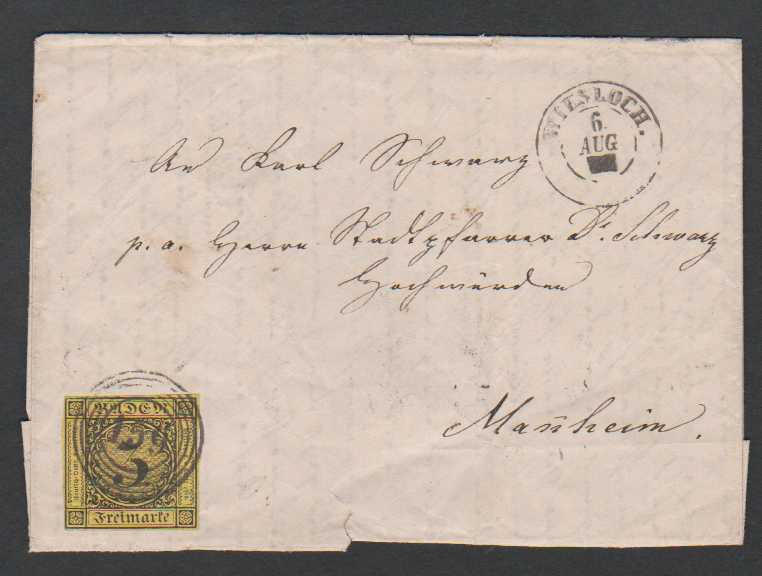 WIESLOCH.
6.
AUG
An Karl Schwarz
p. a. Herrn Stadtpfarrer Dr. Schwarz
Hochwürden
Mañheim.
BADEN
3
Freimarke